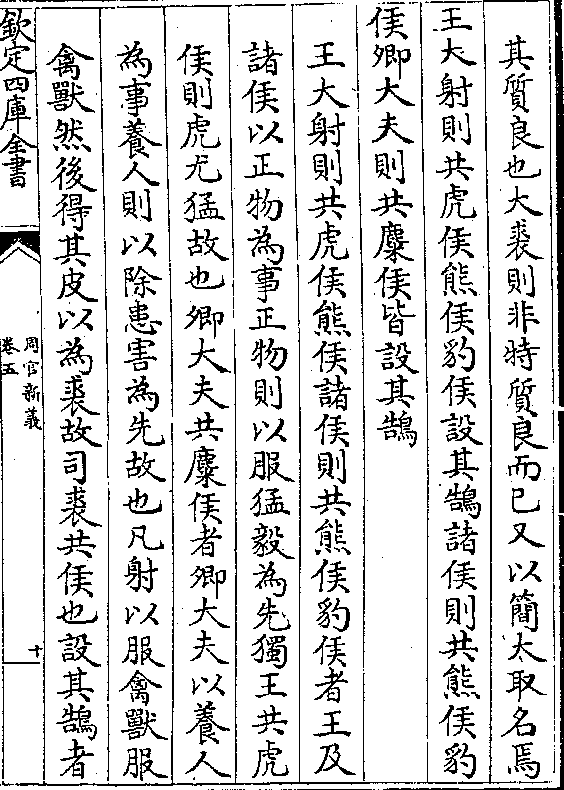 其質良也大裘則非特質良而已又以簡太取名焉
王大射則共虎侯熊侯豹侯設其鵠諸侯則共熊侯豹
侯卿大夫則共麋侯皆設其鵠
王大射則共虎侯熊侯諸侯則共熊侯豹侯者王及
諸侯以正物為事正物則以服猛毅為先獨王共虎
侯則虎尤猛故也卿大夫共麋侯者卿大夫以養人
為事養人則以除患害為先故也凡射以服禽獸服
禽獸然後得其皮以為裘故司裘共侯也設其鵠者
欽定四庫全書
周官新義
卷五
十